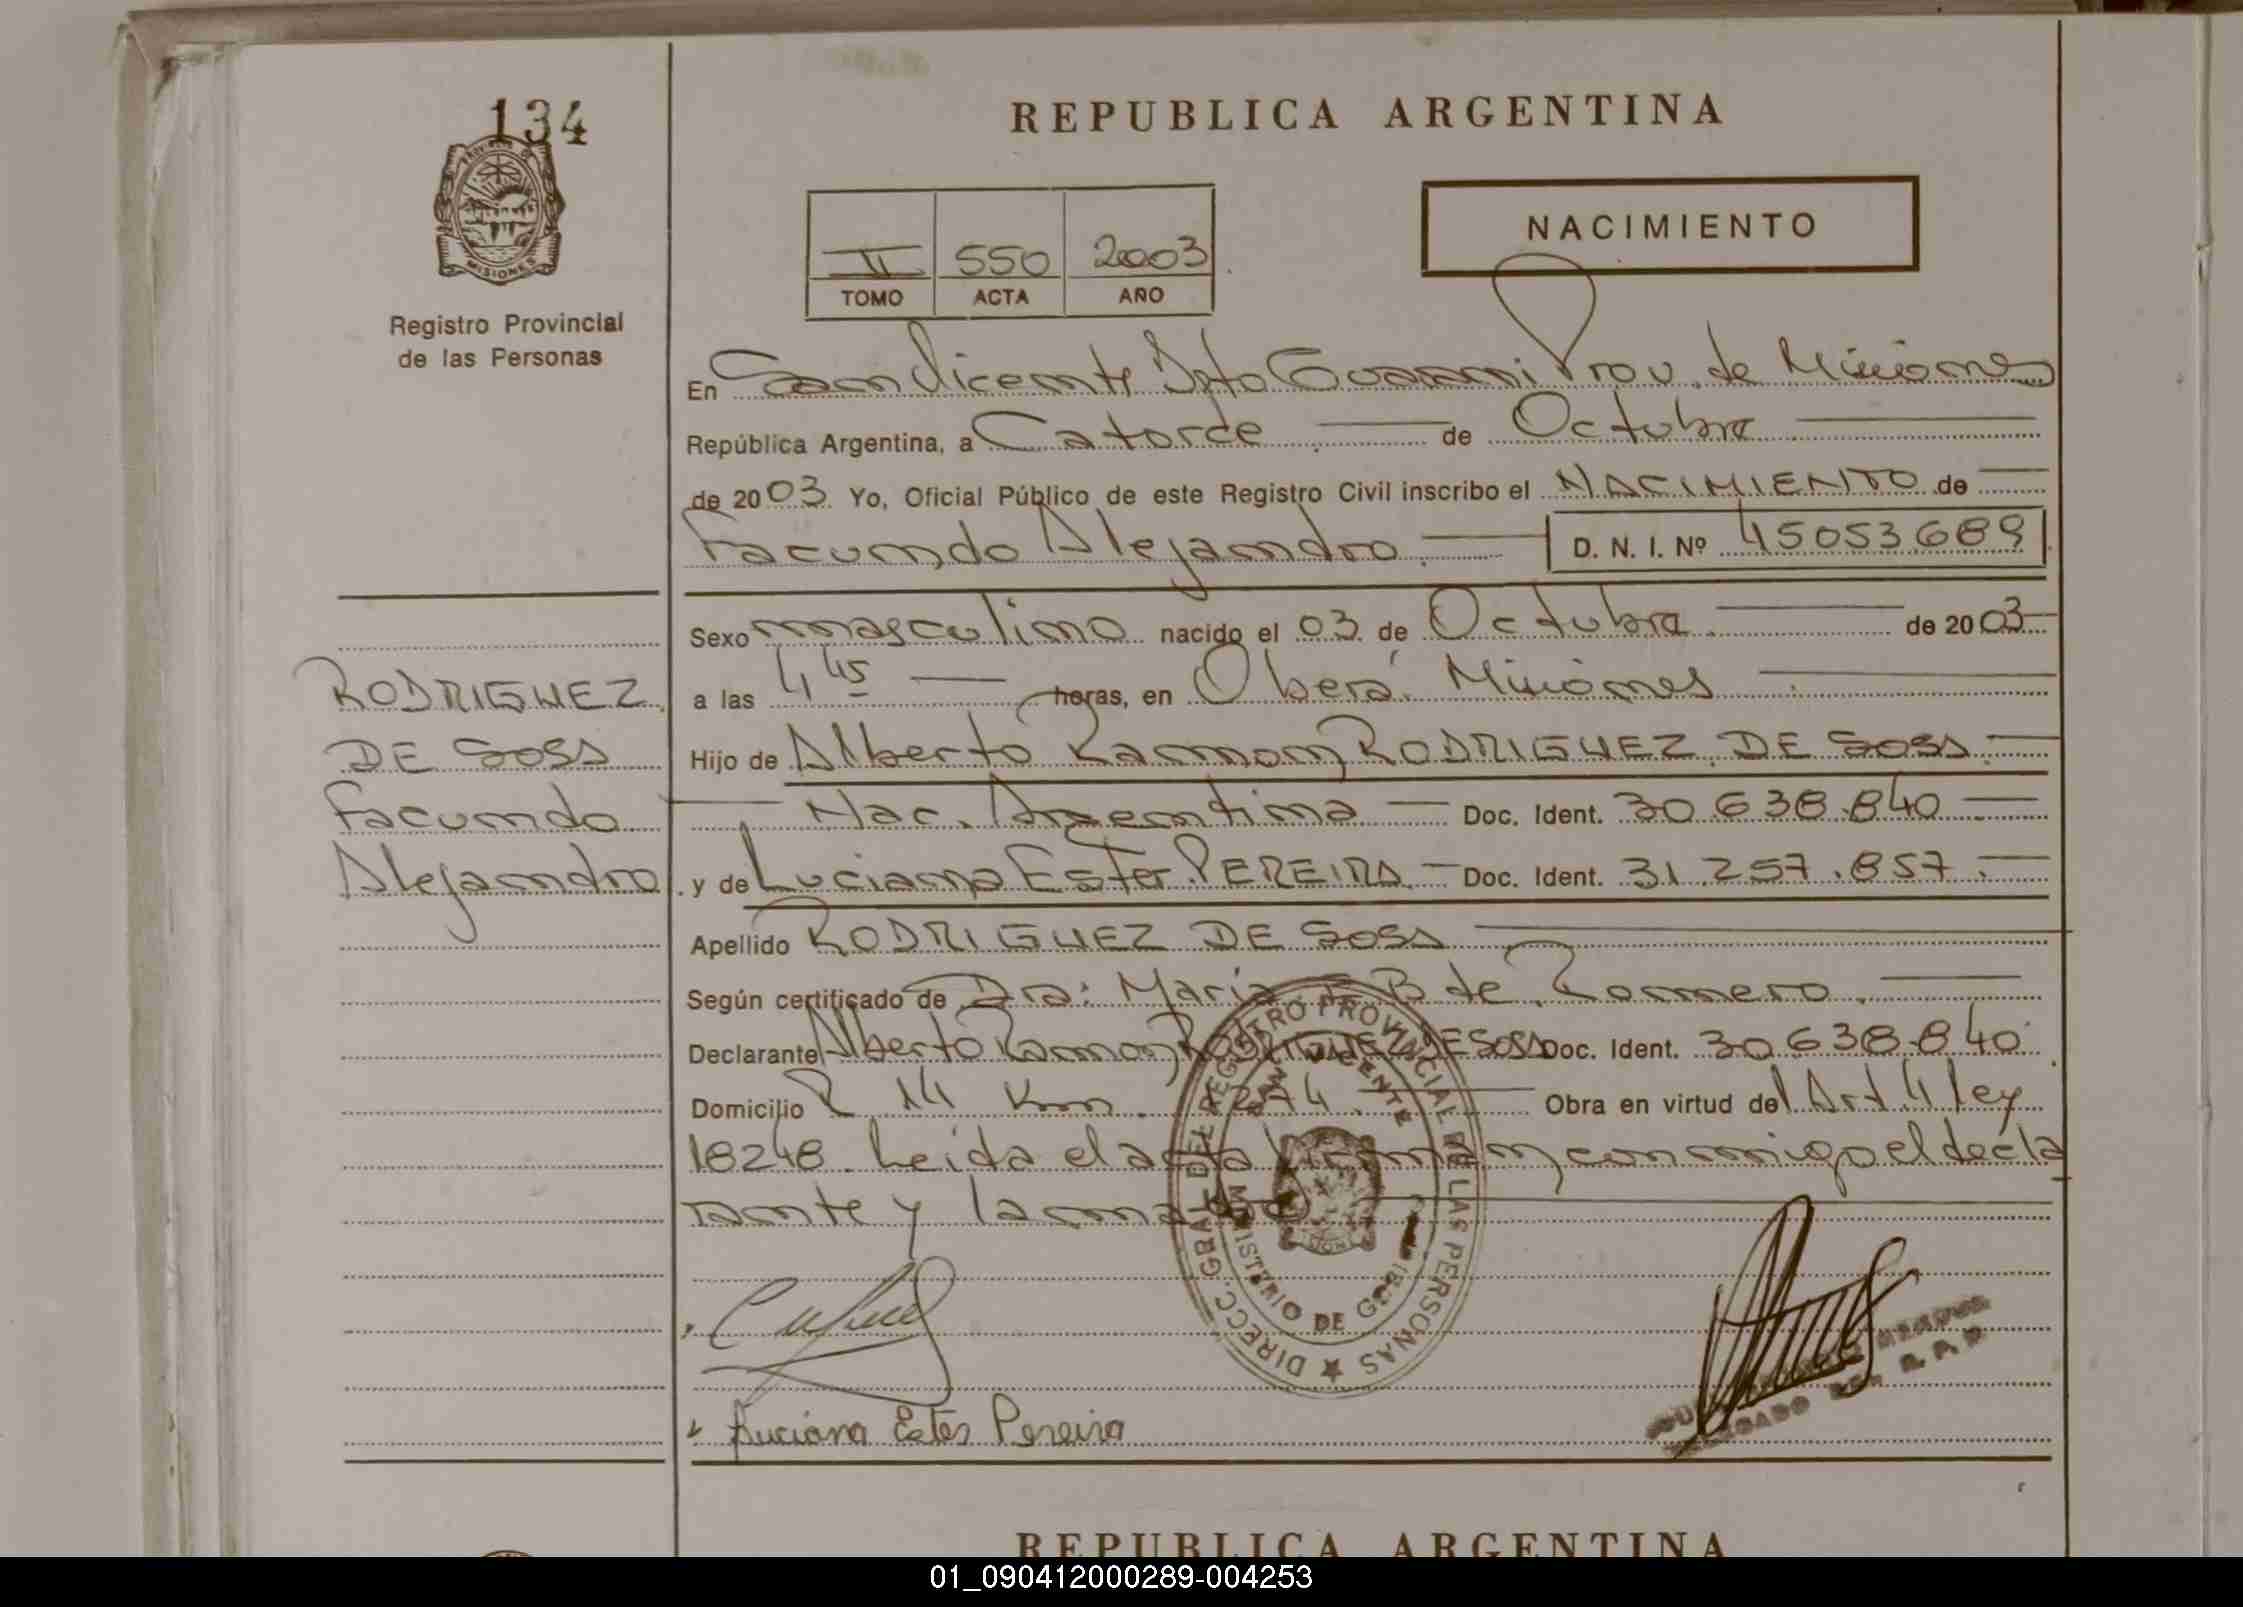 134
PROVINCIA DE
MISIONES
Registro Provincial
de las Personas
REPUBLICA ARGENTINA
II 550 2003
TOMO ACTA AÑO
NACIMIENTO
En San Vicente Dpto Guarani Prov. de Misiones
República Argentina, a Catorce de Octubre
de 2003 Yo, Oficial Público de este Registro Civil inscribo el NACIMIENTO de
Facundo Alejandro D. N. I. Nº 45053689
Sexo masculino nacido el 03 de Octubre de 2003
a las 4 45 horas, en Oberá Misiones
Hijo de Alberto Ramon RODRIGUEZ DE SOSA
Nac. Argentina Doc. Ident. 30.638.840
y de Luciana Ester PEREIRA Doc. Ident. 31.257.857
Apellido RODRIGUEZ DE SOSA
Según certificado de Dra: Maria B de Romero
Declarante Alberto Ramon RODRIGUEZ DE SOSA Doc. Ident. 30.638.840
Domicilio R 14 Km. 1274 Obra en virtud del Art 4 ley
18248. Leida el acta firman conmigo el decla
rante y la madre
RODRIGUEZ
DE SOSA
Facundo
Alejandro
DIRECC. GRAL. DEL REGISTRO PROVINCIAL DE LAS PERSONAS
SAN VICENTE
MINISTERIO DE GOBIERNO
Luciana Ester Pereira
REPUBLICA ARGENTINA
01_090412000289-004253